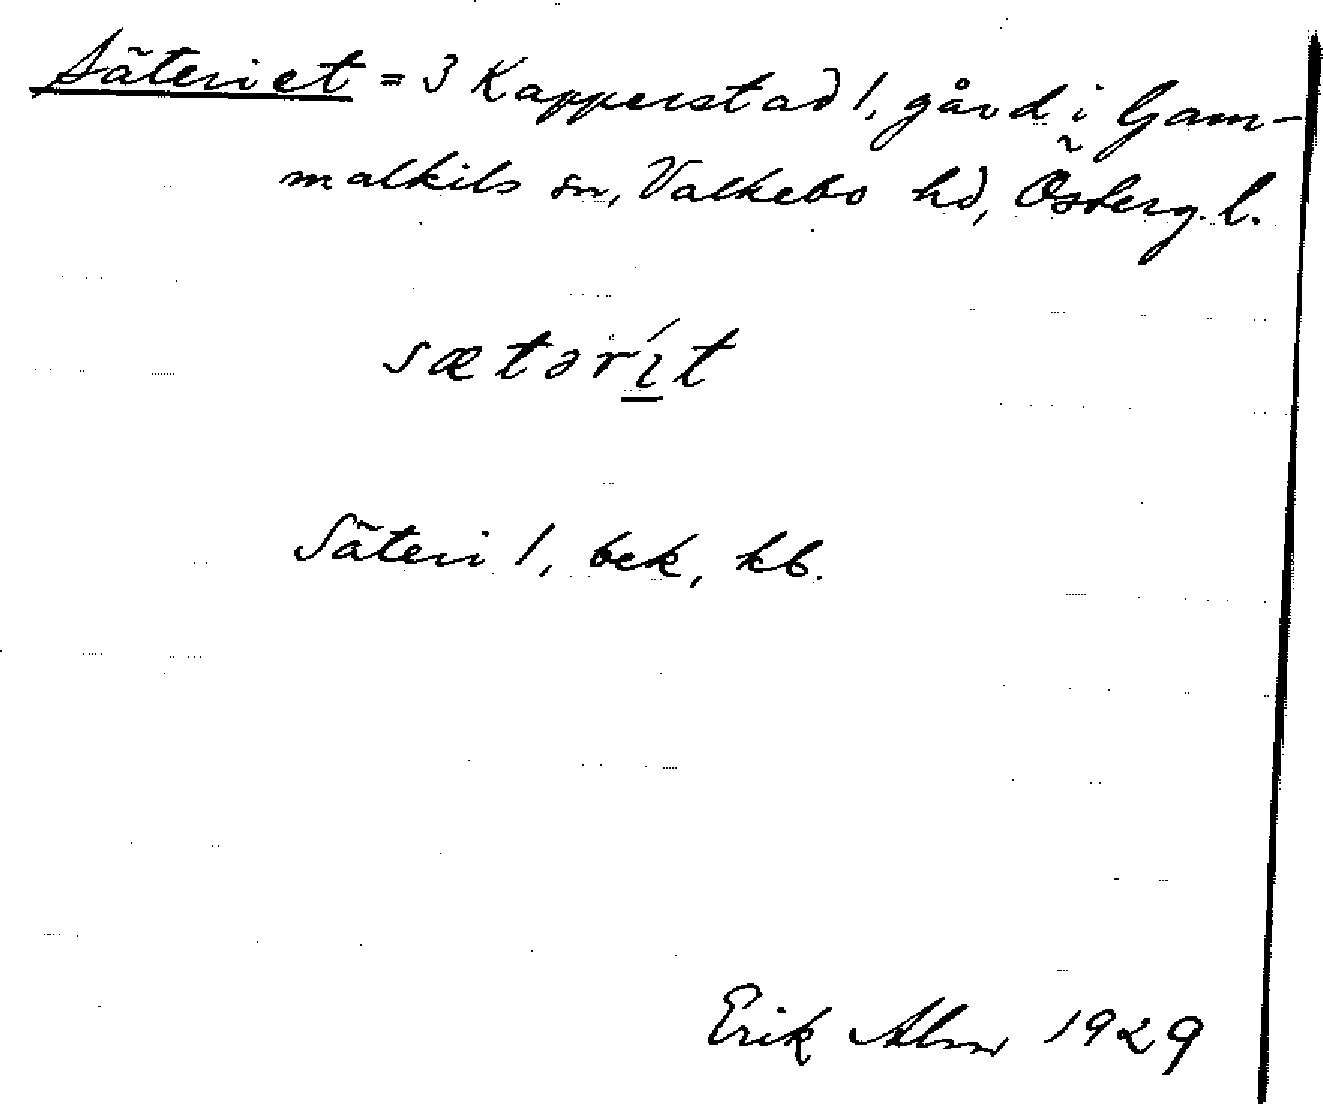 Säteriet = 3 Kapperstad 1, gård i Gam-
malkils sn, Valkebo hd, Österg. l.
sætərít
Säteri 1, bek, kb.
Erik Alm 1929